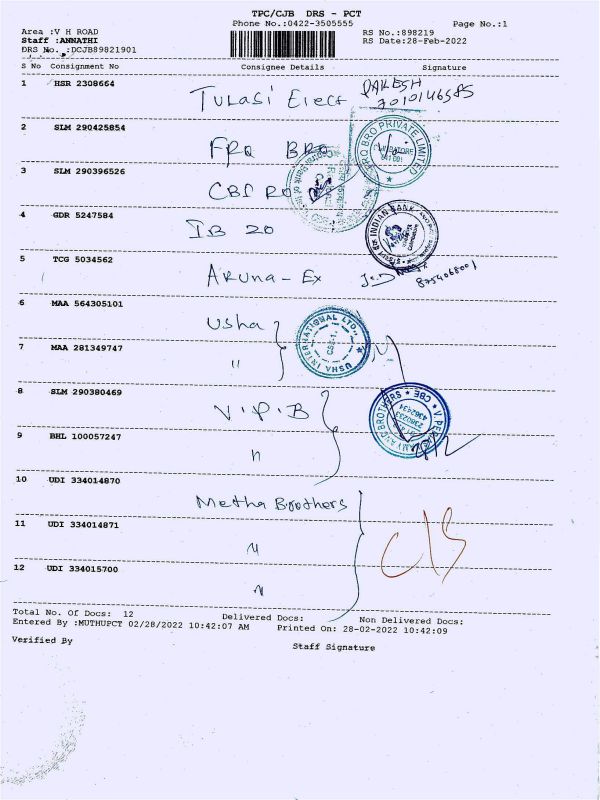 TPC/CJB DRS - PCT
Phone No.:0422-3505555
Page No.:1
Area :V H ROAD
RS No.:898219
Staff :ANNATHI
RS Date:28-Feb-2022
DRS No. :DCJB89821901
S No Consignment No Consignee Details Signature
1 HSR 2308664 Tulasi Elect RAKESH
7010146585
2 SLM 290425854
FRQ BRO
FRQ BRO PRIVATE LIMITED
3 SLM 290396526
CBI RO
4 GDR 5247584
IB 20
INDIAN BANK
5 TCG 5034562
Aruna - Ex
8754068001
6 MAA 564305101
Usha
USHA INTERNATIONAL LTD.,
CBE-1.
7 MAA 281349747
"
8 SLM 290380469
V.P.B
BROTHERS * CBE
9 BHL 100057247
"
10 UDI 334014870
Metha Brothers
11 UDI 334014871
"
12 UDI 334015700
"
Total No. Of Docs: 12 Delivered Docs: Non Delivered Docs:
Entered By :MUTHUPCT 02/28/2022 10:42:07 AM Printed On: 28-02-2022 10:42:09
Verified By Staff Signature